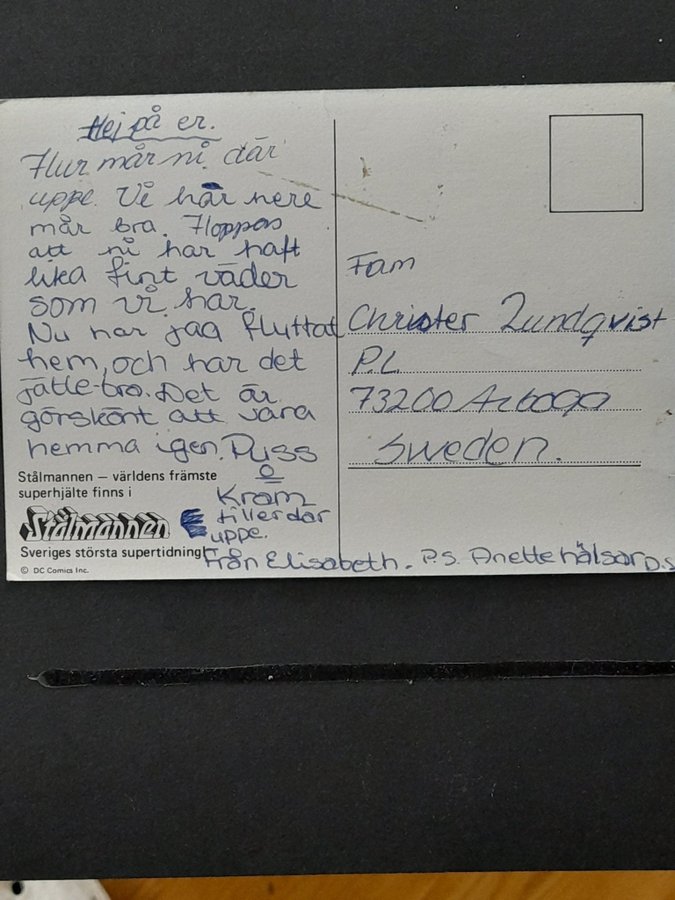 Hej på er.
Hur mår ni där
uppe. Vi här nere
mår bra. Hoppas
att ni har haft
lika fint väder
som vi har.
Nu har jag fluttat
hem, och har det
jätte-bra. Det är
görskönt att vara
hemma igen. Puss
o
Kram
till er där
uppe.
Från Elisabeth. P.S. Anette hälsar D.S
Stålmannen – världens främste
superhjälte finns i
Stålmannen
Sveriges största supertidning!
© DC Comics Inc.
Fam
Christer Lundqvist
P.L
73200 Arboga
Sweden.